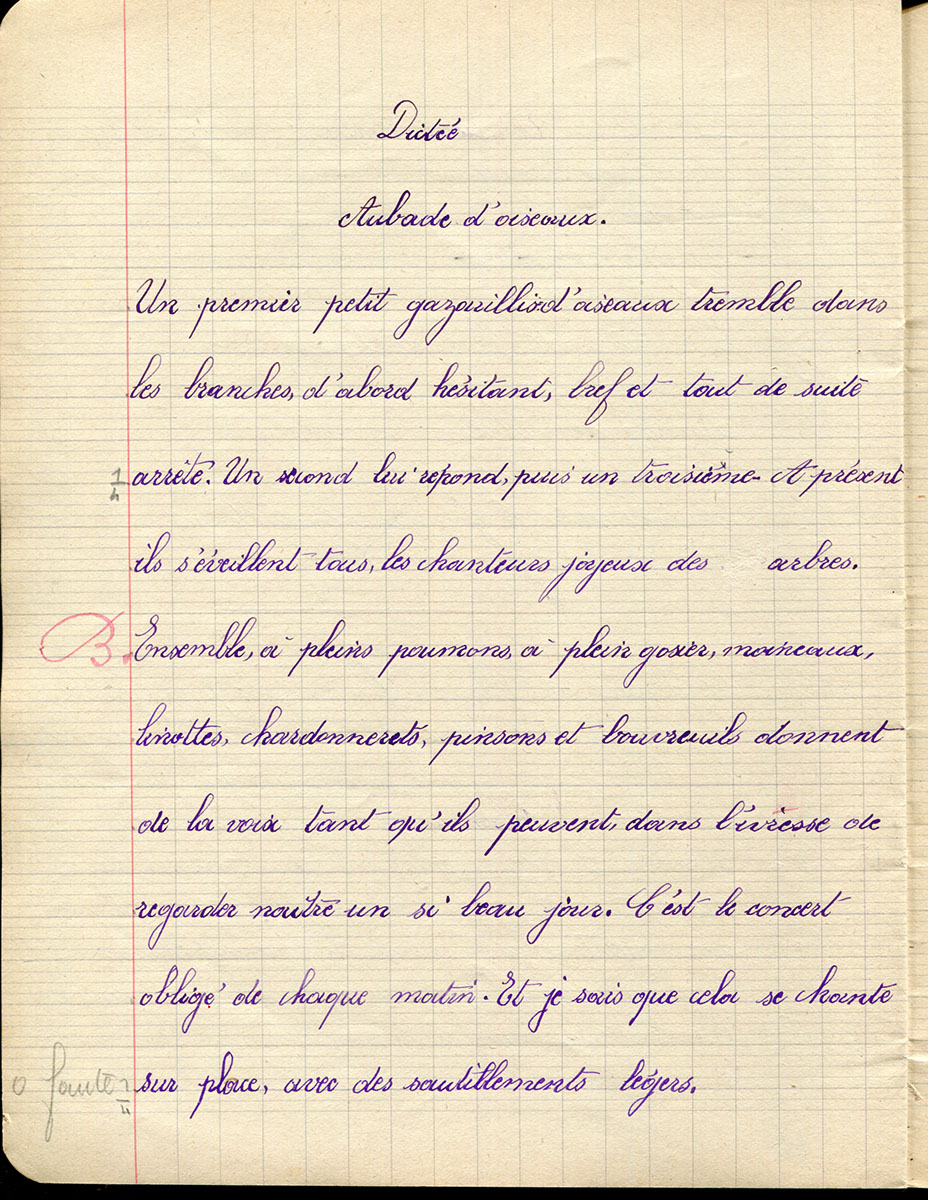 Dictée
Aubade d'oiseaux.
Un premier petit gazouillis d'oiseaux tremble dans
les branches, d'abord hésitant, bref et tout de suite
1/4 arrêté. Un second lui répond, puis un troisième. A présent
ils s'éveillent tous, les chanteurs joyeux des arbres.
B. Ensemble, à pleins poumons, à plein gosier, moineaux,
linottes, chardonnerets, pinsons et bouvreuils donnent
de la voix tant qu'ils peuvent, dans l'ivresse de
regarder naître un si beau jour. C'est le concert
obligé de chaque matin. Et je sais que cela se chante
0 faute 1/4 sur place, avec des sautillements légers.